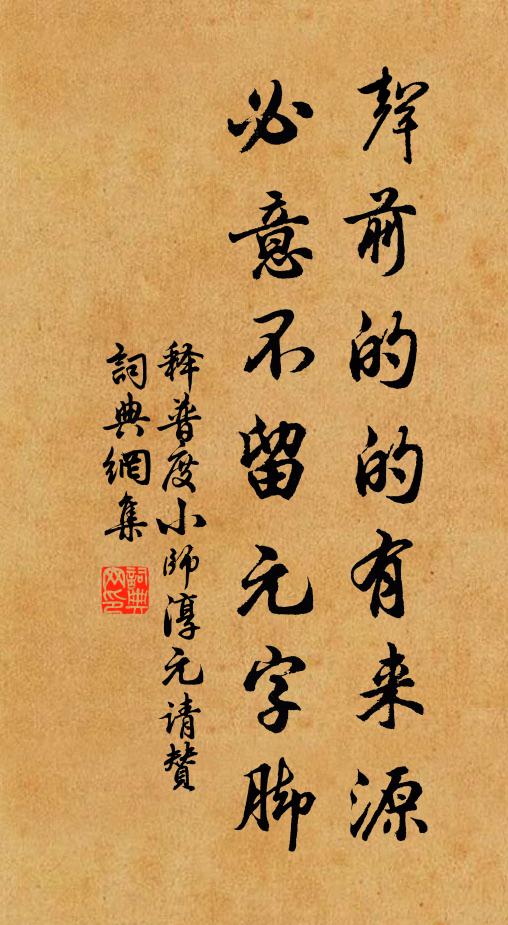 聲前的的有来源
必意不留元字脚
释普度小師淳元请贊
詞典網集
詞典网印